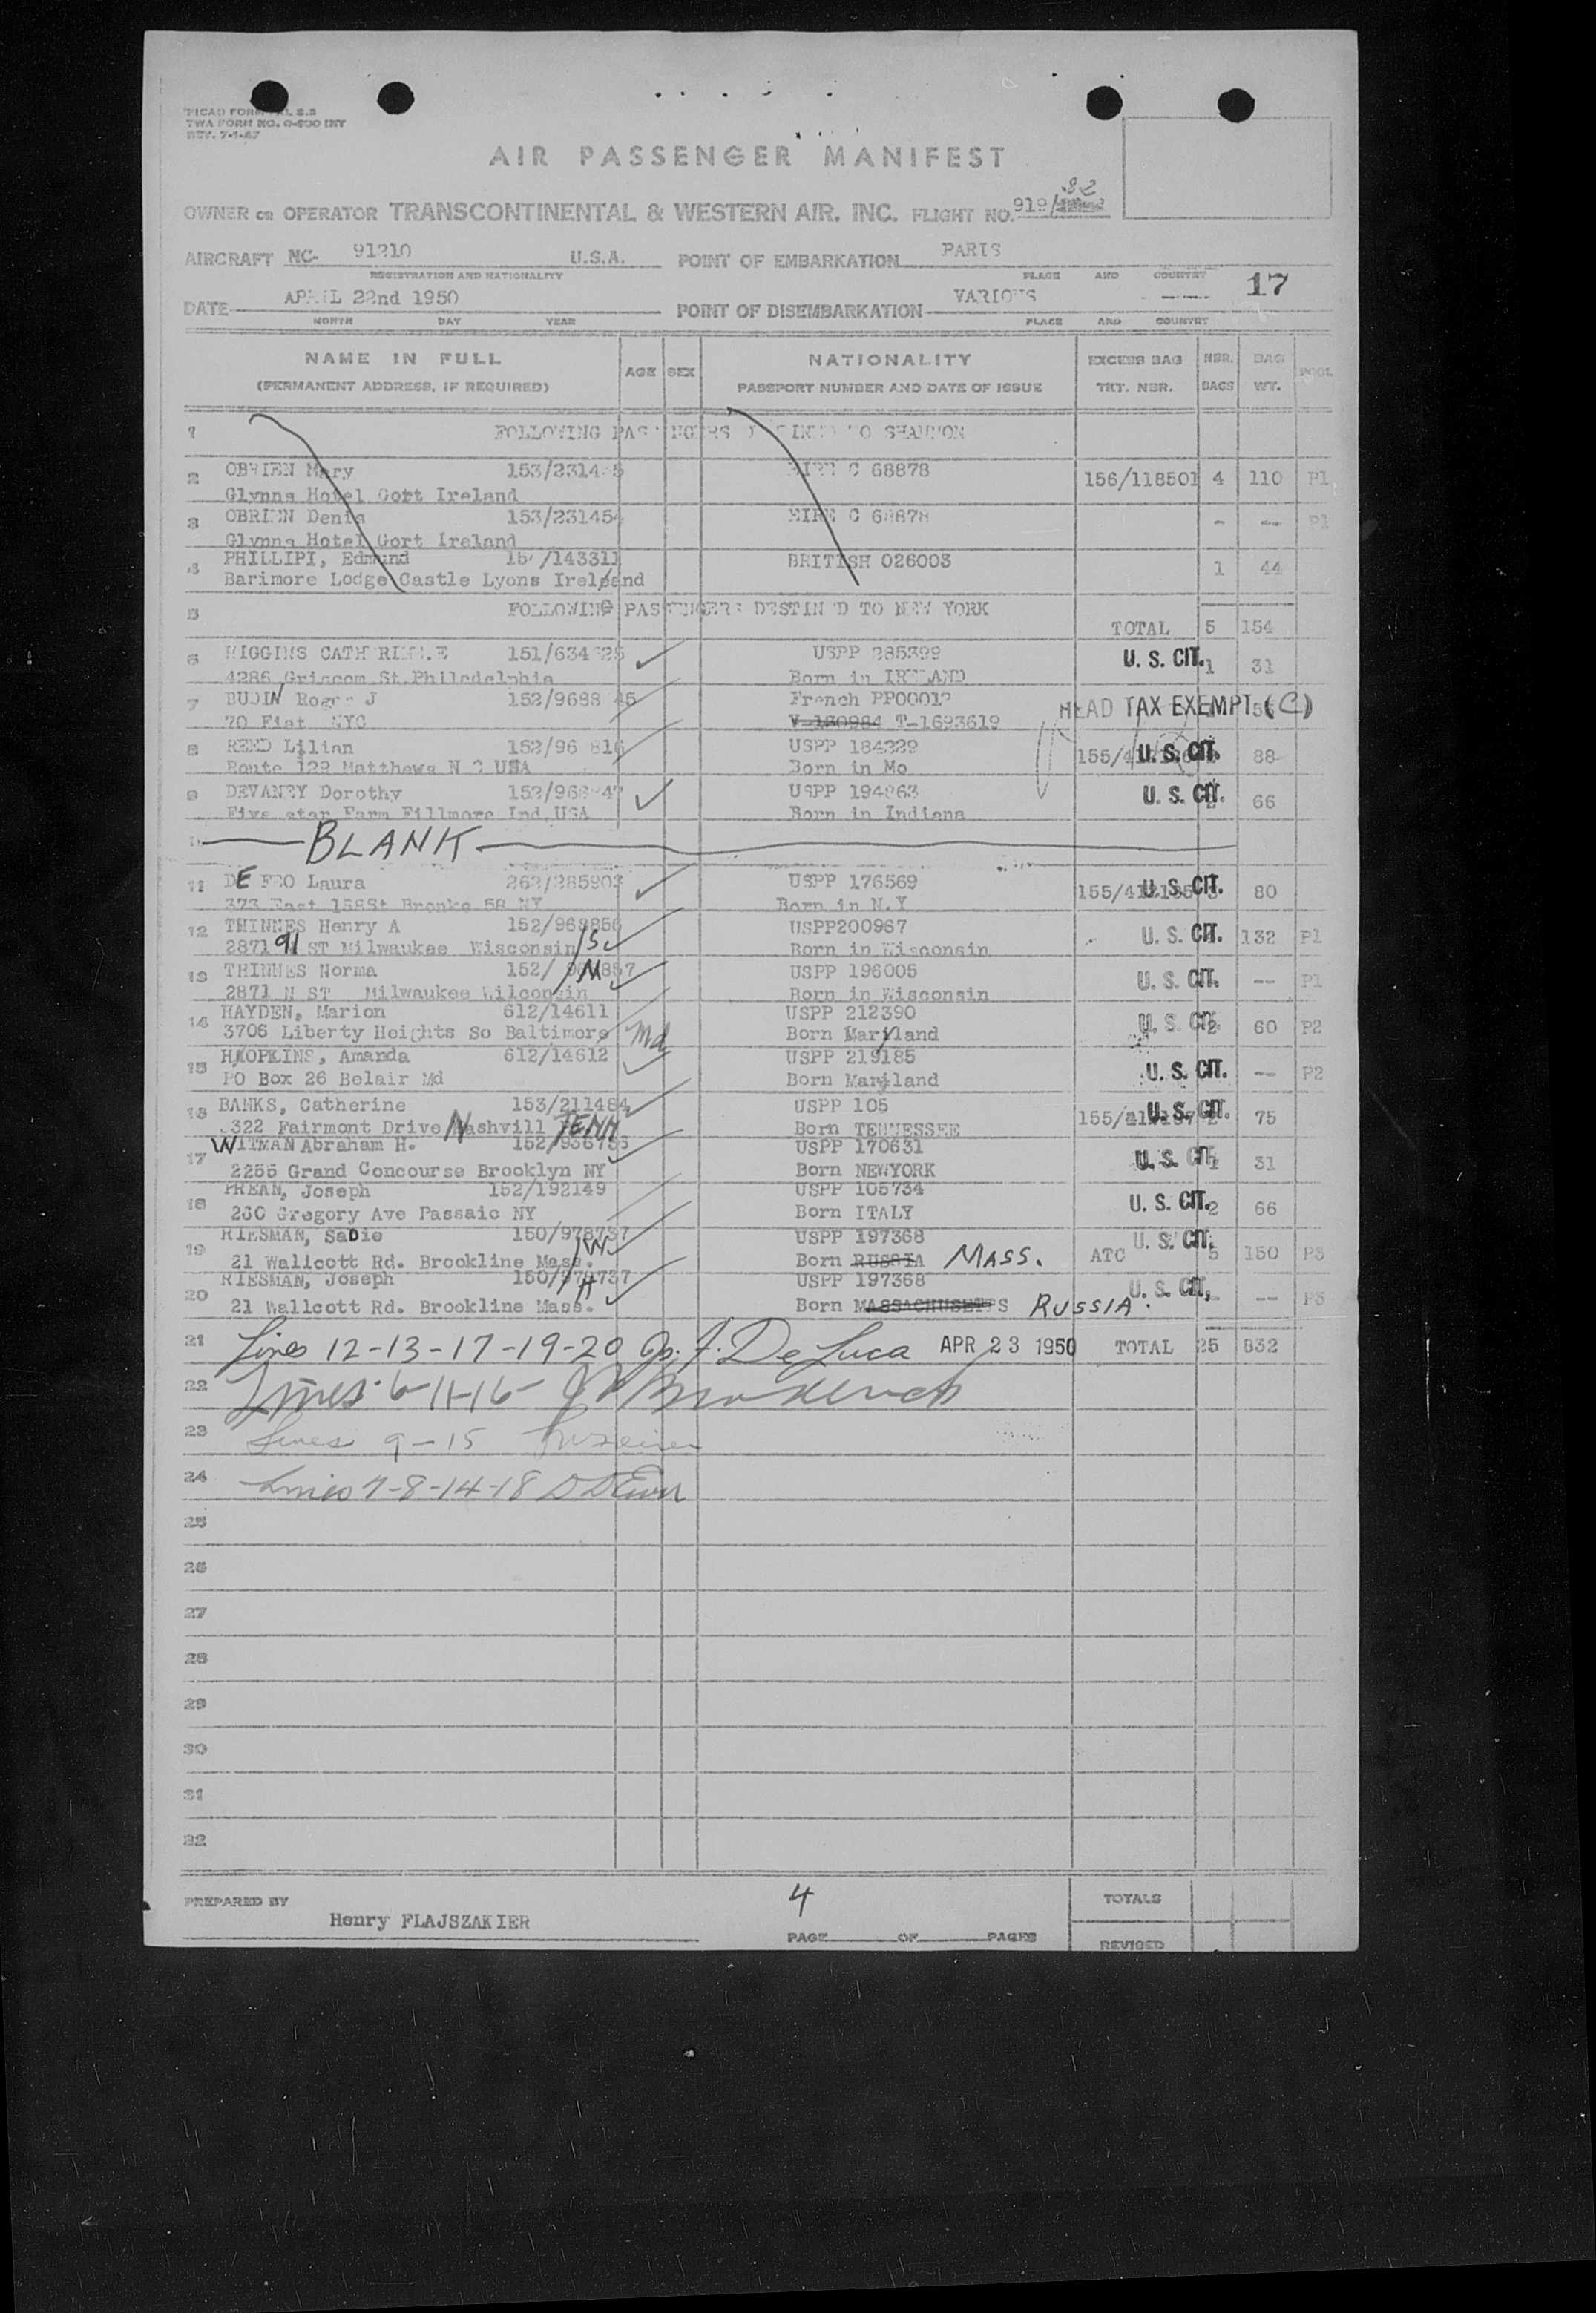 TWA FORM NO. 0-800 INT
REV. 7-1-47
AIR PASSENGER MANIFEST
OWNER OR OPERATOR TRANSCONTINENTAL & WESTERN AIR, INC. FLIGHT NO. 919/ 82
AIRCRAFT NC- 91210 U.S.A. POINT OF EMBARKATION PARIS
REGISTRATION AND NATIONALITY PLACE AND COUNTRY
17
DATE APRIL 22nd 1950 POINT OF DISEMBARKATION VARIOUS
MONTH DAY YEAR PLACE AND COUNTRY
NAME IN FULL AGE SEX NATIONALITY EXCESS BAG NBR. BAG POOL
(PERMANENT ADDRESS, IF REQUIRED) PASSPORT NUMBER AND DATE OF ISSUE TKT. NBR. BAGS WT.
1 FOLLOWING TO SHANNON
2 OBRIEN Mary EIRE C 68878 156/118501 4 110 P1
Glynns Hotel Gort Ireland
3 OBRIEN Denis 153/231454 EIRE C 68878 - -- P1
Glynns Hotel Gort Ireland
4 PHILLIPI, Edmund BRITISH 026003 1 44
Barimore Lodge Castle Lyons Ireland
5 FOLLOWING PASSENGERS DESTIN D TO NEW YORK
TOTAL 5 154
6 HIGGINS USPP 285399 U. S. CIT. 1 31
4286 Griscom St Philadelphia Born in IRELAND
7 BUDIN Roger J French HEAD TAX EXEMPT (C)
70 Fiat NYC V-180984 T-1693619
8 REED Lilian USPP 184229 155/4 U. S. CIT. 88
Route 129 Matthews N C USA Born in Mo
9 DEVANEY Dorothy USPP U. S. CIT. 66
Five star Farm Fillmore Ind. USA Born in Indiana
BLANK
11 DE FEO Laura 262/285903 USPP 176569 U. S. CIT. 80
373 East 158St Bronks 58 NY Born in N.Y
12 THINNES Henry A 152/968856 USPP200967 U. S. CIT. 132 P1
2871 91 ST Milwaukee Wisconsin /S Born in Wisconsin
13 THINNES Norma 152/ /M USPP 196005 U. S. CIT. -- P1
2871 N ST Milwaukee Wilconsin Born in Wisconsin
14 HAYDEN, Marion 612/14611 USPP 212390 U. S. CIT. 2 60 P2
3706 Liberty Heights So Baltimore Md Born Maryland
15 HOPKINS, Amanda 612/14612 USPP 219185 U. S. CIT. -- P2
PO Box 26 Belair Md Born Maryland
16 BANKS, Catherine 153/211484 USPP 105 U. S. CIT. 75
322 Fairmont Drive Nashvill TENN Born TENNESSEE
17 WITMAN Abraham H. USPP 170631 U. S. CIT. 1 31
2255 Grand Concourse Brooklyn NY Born NEWYORK
18 PREAN, Joseph 152/192149 USPP 105734 U. S. CIT. 2 66
230 Gregory Ave Passaic NY Born ITALY
19 RIESMAN, SaDie 150/978737 /W USPP 197368 ATC U. S. CIT. 5 150 P3
21 Wallcott Rd. Brookline Mass. Born RUSSIA MASS.
20 RIESMAN, Joseph /H USPP 197368 U. S. CIT. - -- P3
21 Wallcott Rd. Brookline Mass. Born MASSACHUSETTS RUSSIA.
21 Lines 12-13-17-19-20 Jos. J. De Luca APR 23 1950 TOTAL 25 832
22 Lines 6-11-16-
23 Lines 9-15
24 Lines 7-8-14-18
25
26
27
28
29
30
31
32
PREPARED BY 4 TOTALS
Henry FLAJSZAKIER
PAGE OF PAGES REVISED